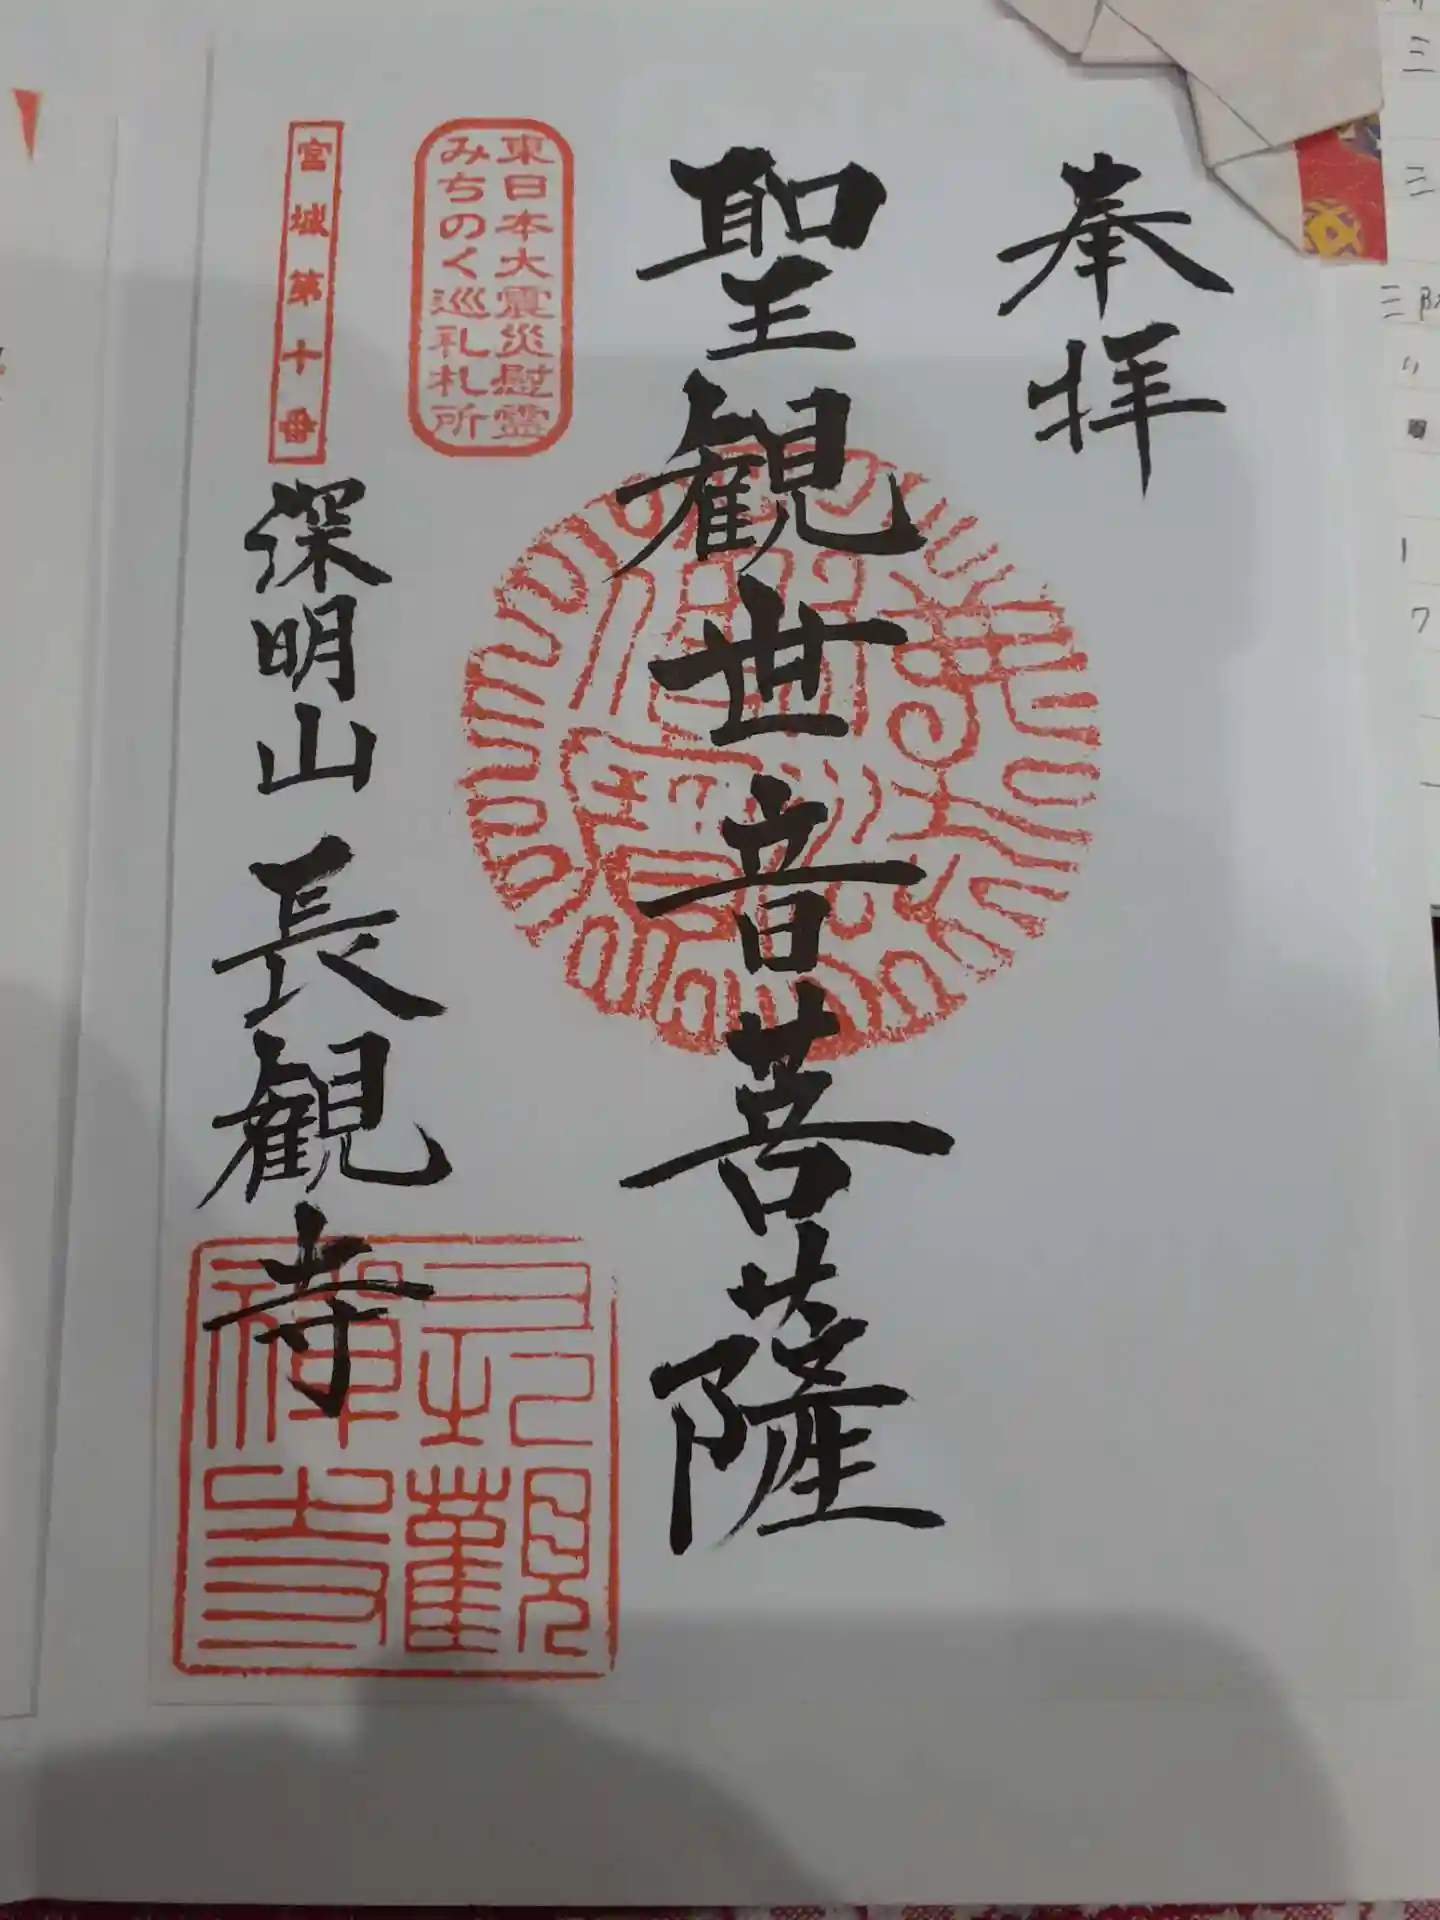 奉拝
聖観世音菩薩
東日本大震災慰霊
みちのく巡礼札所
宮城第十番
深明山 長観寺